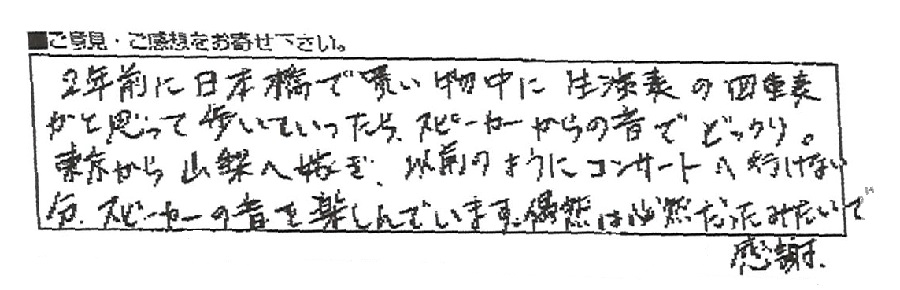 ■ご意見・ご感想をお寄せ下さい。
2年前に日本橋で買い物中に生演奏の四重奏
かと思って歩いていったら、スピーカーからの音でビックリ。
東京から山梨へ嫁ぎ、以前のようにコンサートへ行けない
分、スピーカーの音を楽しんでいます。偶然は必然だったみたいで
感謝.